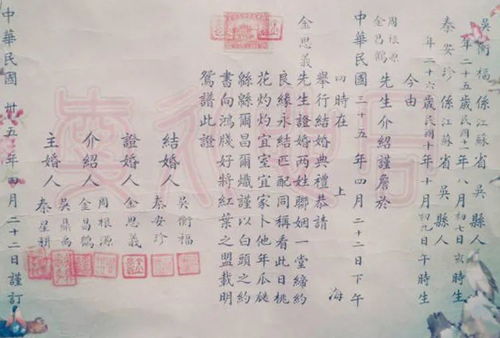 吳衡福係江蘇省吳縣人
年二十五歲民國十一年八月初七日寅時生
秦安珍係江蘇省吳縣人
年二十六歲民國十年十月初九日午時生
今由
周根源
金昌鶴
先生介紹謹詹於
中華民國三十五年四月二十二日下午
四時在上海
舉行結婚典禮恭請
金思義
先生證婚兩姓聯姻一堂締約
良緣永結匹配同稱看此日桃
花灼灼宜室宜家卜他年瓜瓞
綿綿爾昌爾熾謹以白頭之約
書向鴻牋好將紅葉之盟載明
鴛譜此證
結婚人
吳衡福
秦安珍
證婚人
金思義
介紹人
周根源
金昌鶴
主婚人
吳鼎高
秦星耕
中華民國卅五年四月二十二日謹訂